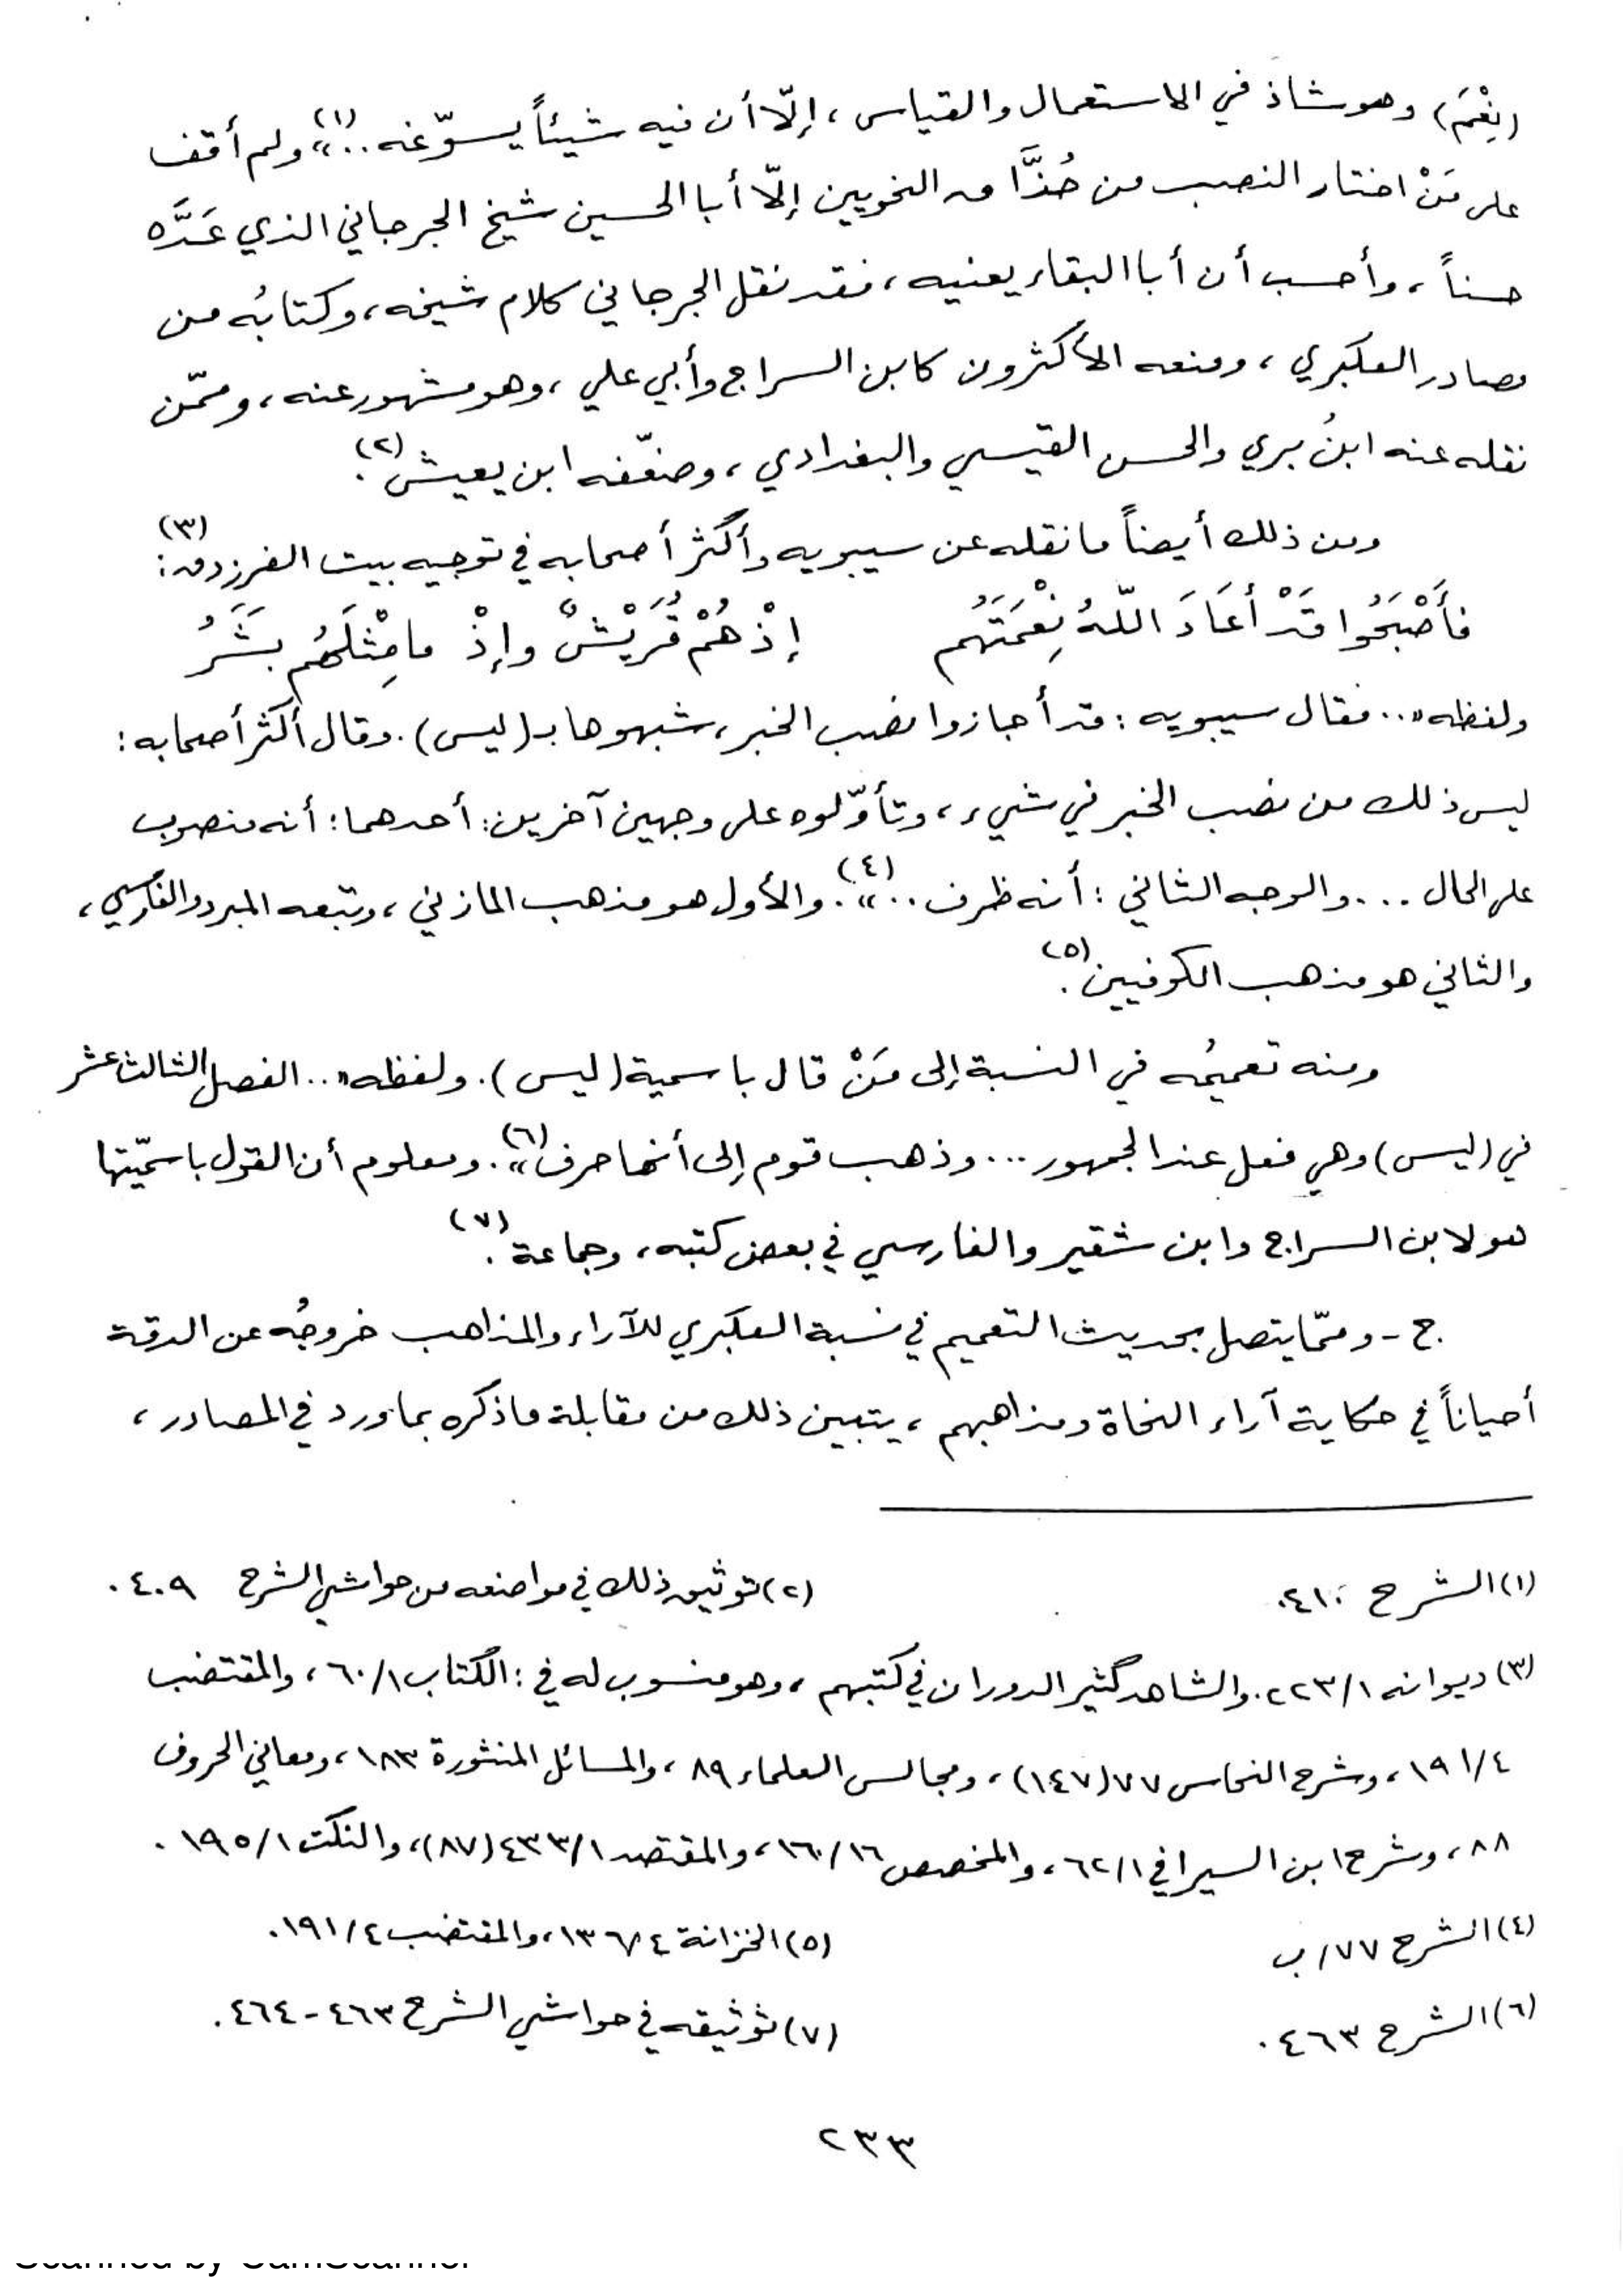 (نِعْمَ) وهو شاذ في الاستعمال والقياس ، إلّا أن فيه شيئاً يسوّغه ..»(١) ولم أقف
على مَنْ اختار النصب من حُذَّاق النحويين إلّا أبا الحسين شيخ الجرجاني الذي عَدَّه
حسناً ، وأحسب أن أبا البقاء يعنيه ، فقد نقل الجرجاني كلام شيخه ، وكتابُه من
مصادر العكبري ، ومنعه الأكثرون كابن السراج وأبي علي ، وهو مشهور عنه ، وممّن
نقله عنه ابنُ بري والحسن القيسي والبغدادي ، وضعّفه ابن يعيش(٢) .
ومن ذلك أيضاً ما نقله عن سيبويه وأكثر أصحابه في توجيه بيت الفرزدق(٣) :
فأَصْبَحُوا قَدْ أَعَادَ اللّهُ نِعْمَتَهُم إِذْ هُمْ قُرَيْشٌ وإِذْ ما مِثْلَهُم بَشَرُ
ولفظه «.. فقال سيبويه : قد أجازوا نصب الخبر ، شبهوها بـ (ليس) . وقال أكثر أصحابه :
ليس ذلك من نصب الخبر في شيء ، وتأوّلوه على وجهين آخرين : أحدهما : أنه منصوب
على الحال ... والوجه الثاني : أنه ظرف ..»(٤) . والأول هو مذهب المازني ، وتبعه المبرد والفارسي ،
والثاني هو مذهب الكوفيين(٥) .
ومنه تعميمُه في النسبة إلى مَنْ قال باسمية (ليس) . ولفظه «.. الفصل الثالث عشر
في (ليس) وهي فعل عند الجمهور ... وذهب قوم إلى أنها حرف»(٦) . ومعلوم أن القول باسميّتها
هو لابن السراج وابن شقير والفارسي في بعض كتبه ، وجماعة(٧) .
ج - وممّا يتصل بحديث التعميم في نسبة العكبري للآراء والمذاهب خروجُه عن الدقة
أحياناً في حكاية آراء النحاة ومذاهبهم ، يتبين ذلك من مقابلة ما ذكره بما ورد في المصادر ،
(١) الشرح ٤١٠ . (٢) توثيق ذلك في مواضعه من حواشي الشرح ٤٠٩ .
(٣) ديوانه ٢٢٣/١ . والشاهد كثير الدوران في كتبهم ، وهو منسوب له في : الكتاب ٦٠/١ ، والمقتضب
١٩١/٤ ، وشرح النحاس ٧٧ (١٤٧) ، ومجالس العلماء ٨٩ ، والمسائل المنثورة ١٨٣ ، ومعاني الحروف
٨٨ ، وشرح ابن السيرافي ٦٢/١ ، والمخصص ١٦٠/١٦ ، والمقتصد ٤٣٣/١ (٨٧) ، والنكت ١٩٥/١ .
(٤) الشرح ٧٧/ب (٥) الخزانة ١٣٦/٤ ، والمقتضب ١٩١/٤ .
(٦) الشرح ٤٦٣ . (٧) توثيقه في حواشي الشرح ٤٦٣ - ٤٦٤ .
٢٣٣
Scanned by CamScanner